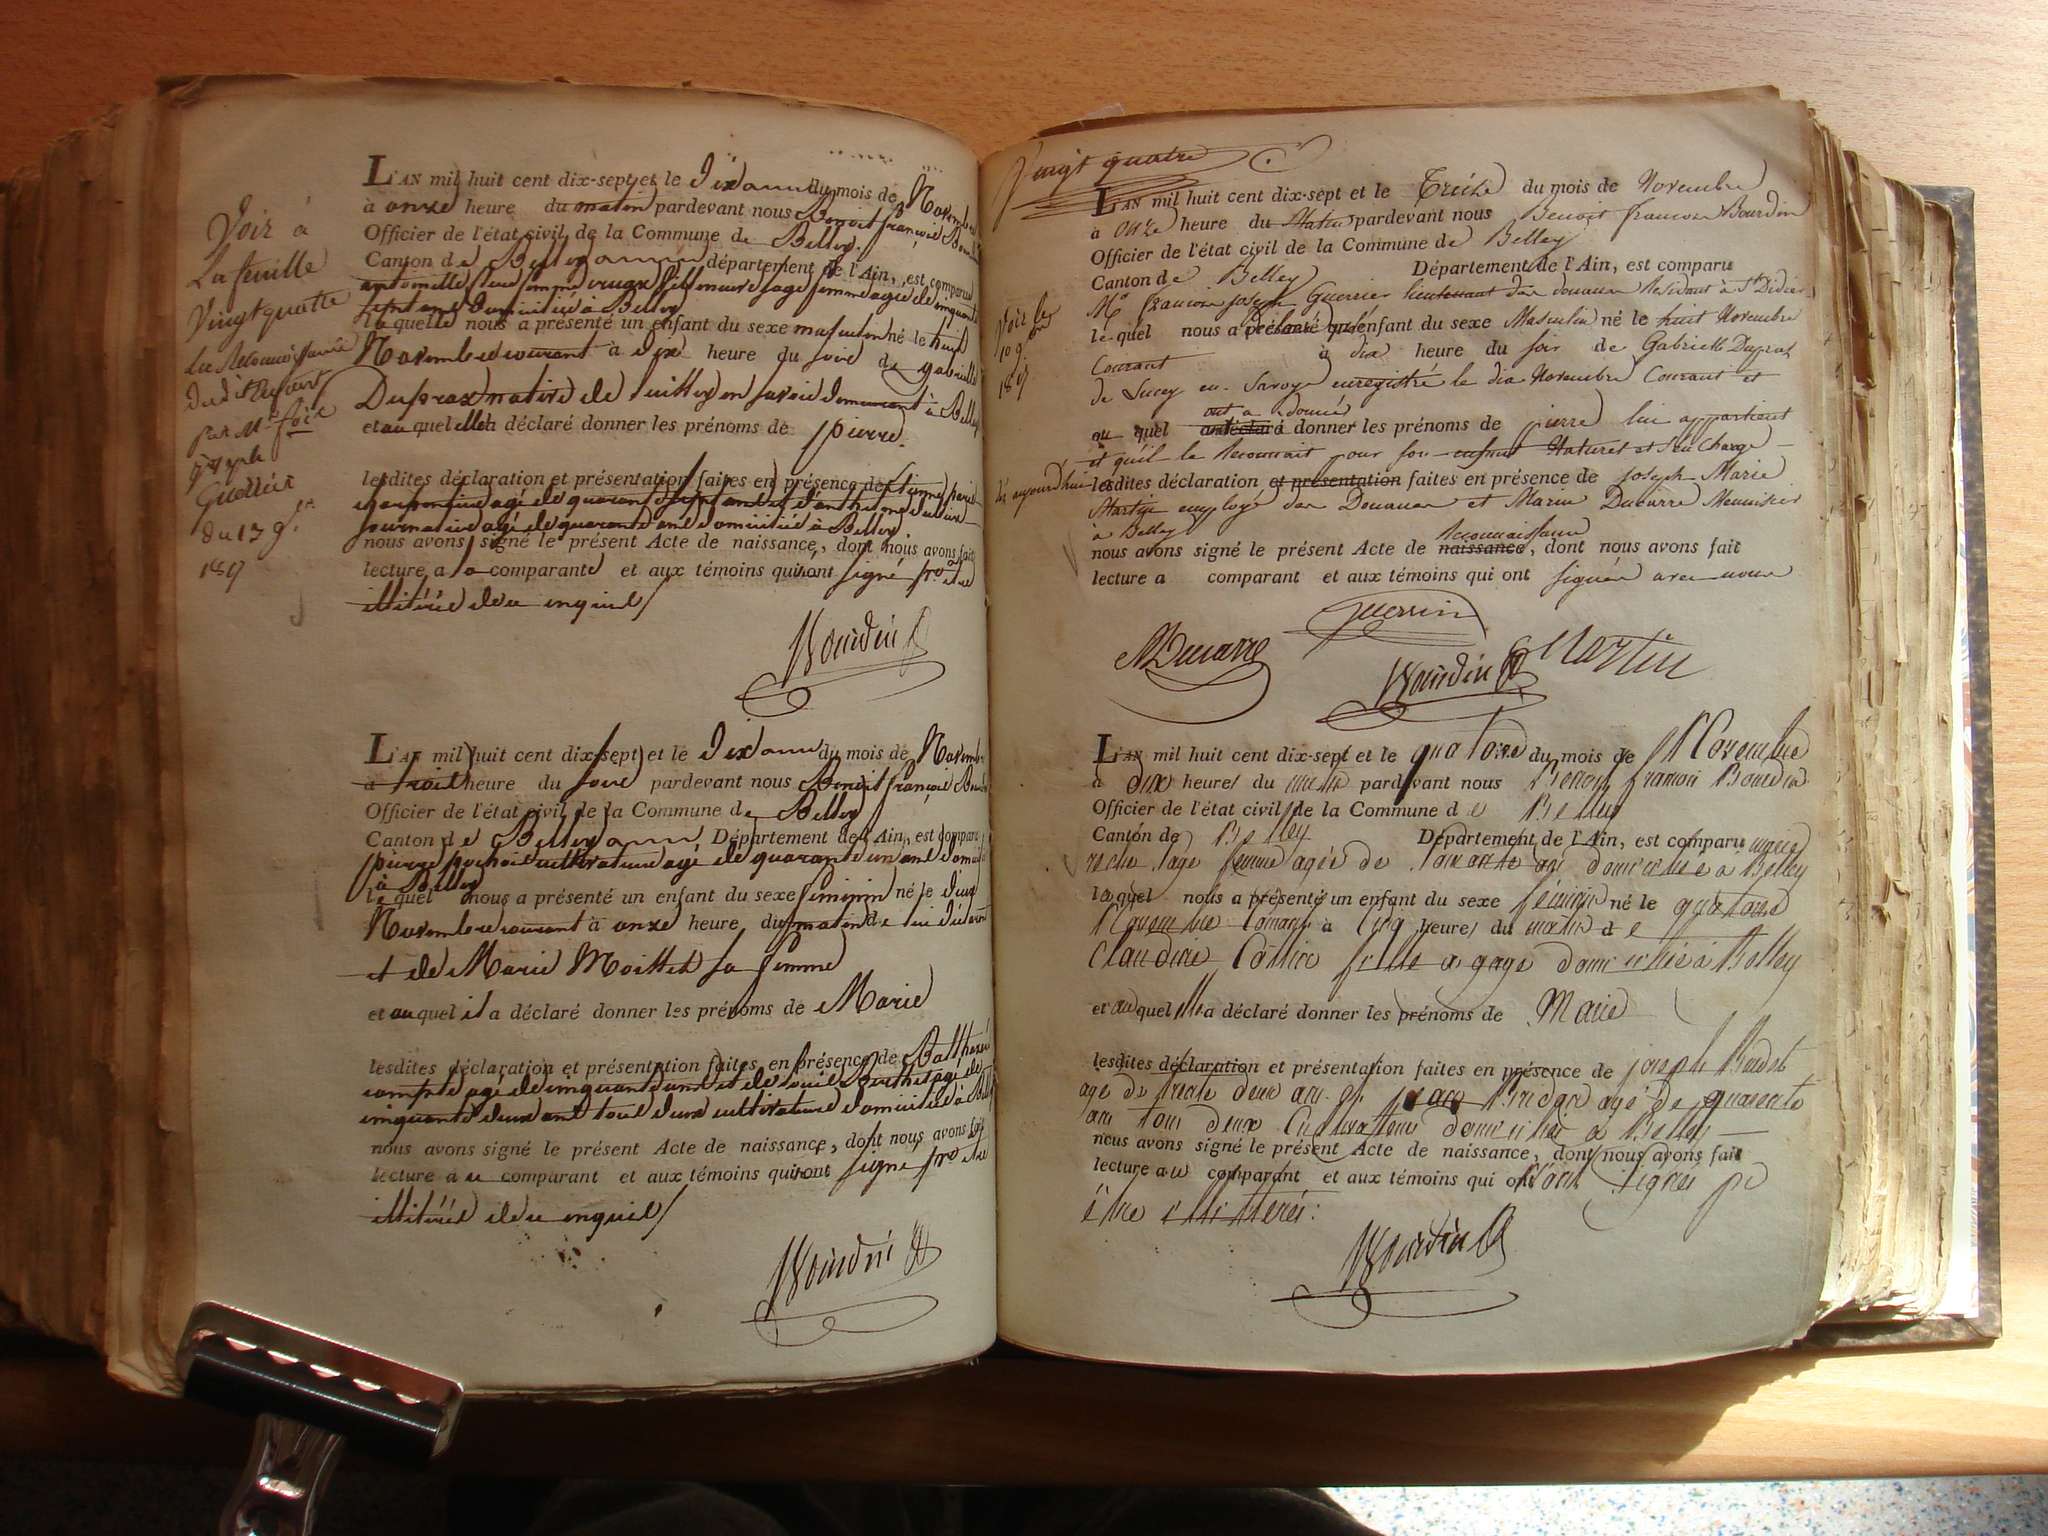 Voir à
La feuille
Vingt quatre
la Reconnoissance
du dit Enfant
par Mr. foiz
Joseph
Guerrier
du 13 9.bre
1817
L'AN mil huit cent dix-sept et le Dix du mois de Novembre
à onze heure du matin pardevant nous Benoit françois Bourdin
Officier de l'état civil de la Commune de Belley
Canton de Belley département de l'Ain, est comparu
sage femme agée de cinquante
sept ans domiciliée à Belley
laquelle nous a présenté un enfant du sexe masculin né le huit
Novembre courant à dix heure du soir de gabrielle
Dupraz native de en savoie demeurant à Belley
et auquel elle a déclaré donner les prénoms de pierre.
lesdites déclaration et présentation faites en présence de
agé de quarante sept ans et d'anthelme
agé de quarante ans domiciliés à Belley
nous avons signé le présent Acte de naissance, dont nous avons fait
lecture a la comparante et aux témoins qui n'ont signé pr. etre
illitérés de ce enquis
Bourdin
L'AN mil huit cent dix-sept et le Dix du mois de Novembre
à trois heure du soir pardevant nous Benoit françois Bourdin
Officier de l'état civil de la Commune de Belley
Canton de Belley Département de l'Ain, est comparu
pierre cultivateur agé de quarante un ans domicilié
à Belley
lequel nous a présenté un enfant du sexe feminin né le dix
Novembre courant à onze heure du matin de lui déclarant
et de Marie Moittet sa femme
et auquel il a déclaré donner les prénoms de Marie
lesdites déclaration et présentation faites en présence de Balthazard
agé de cinquante ans et de Louis Berthet agé de
cinquante deux ans tous deux cultivateurs domiciliés à Belley
nous avons signé le présent Acte de naissance, dont nous avons fait
lecture au comparant et aux témoins qui n'ont signé pr. etre
illitérés de ce enquis
Bourdin
Vingt quatre
L'AN mil huit cent dix-sept et le Treize du mois de Novembre
à onze heure du Matin pardevant nous Benoit francois Bourdin
Officier de l'état civil de la Commune de Belley
Canton de Belley Département de l'Ain, est comparu
Mr. francois joseph Guerrier lieutenant des douanes Residant à St. Didier
lequel nous a déclaré que présenté un enfant du sexe Masculin né le huit Novembre
Courant à dix heure du soir de Gabrielle Dupraz
Voir le
10 9.bre
1817
de Lucey en Savoye enregistré le dix Novembre Courant et
on a donné
au quel a déclaré donner les prénoms de pierre lui appartient
et qu'il le Reconnait pour son enfant Naturel et s'en Charge
dès aujourd'hui lesdites déclaration et présentation faites en présence de joseph Marie
Martin employé des Douanes et Marin Ducarre Menuisier
à Belley
Reconnaissance
nous avons signé le présent Acte de naissance, dont nous avons fait
lecture a comparant et aux témoins qui ont signés avec nous
Guerrier
MDucarre
Bourdin
Martin
L'AN mil huit cent dix-sept et le quatorze du mois de Novembre
à dix heures du matin pardevant nous Benoit francois Bourdin
Officier de l'état civil de la Commune de Belley
Canton de Belley Département de l'Ain, est comparu marie
sage femme agée de soixante ans domiciliée à Belley
laquel nous a présenté un enfant du sexe féminin né le quatorze
Novembre Courant à Cinq heures du matin de
Claudine Collin fille a gage domiciliée à Belley
et auquel elle a déclaré donner les prénoms de Marie
lesdites déclaration et présentation faites en présence de joseph
agé de trente deux ans et agé de quarante
ans tous deux Cultivateurs domiciliés à Belley
nous avons signé le présent Acte de naissance, dont nous avons fait
lecture au comparant et aux témoins qui ont n'ont signés pr
être illitérés.
Bourdin